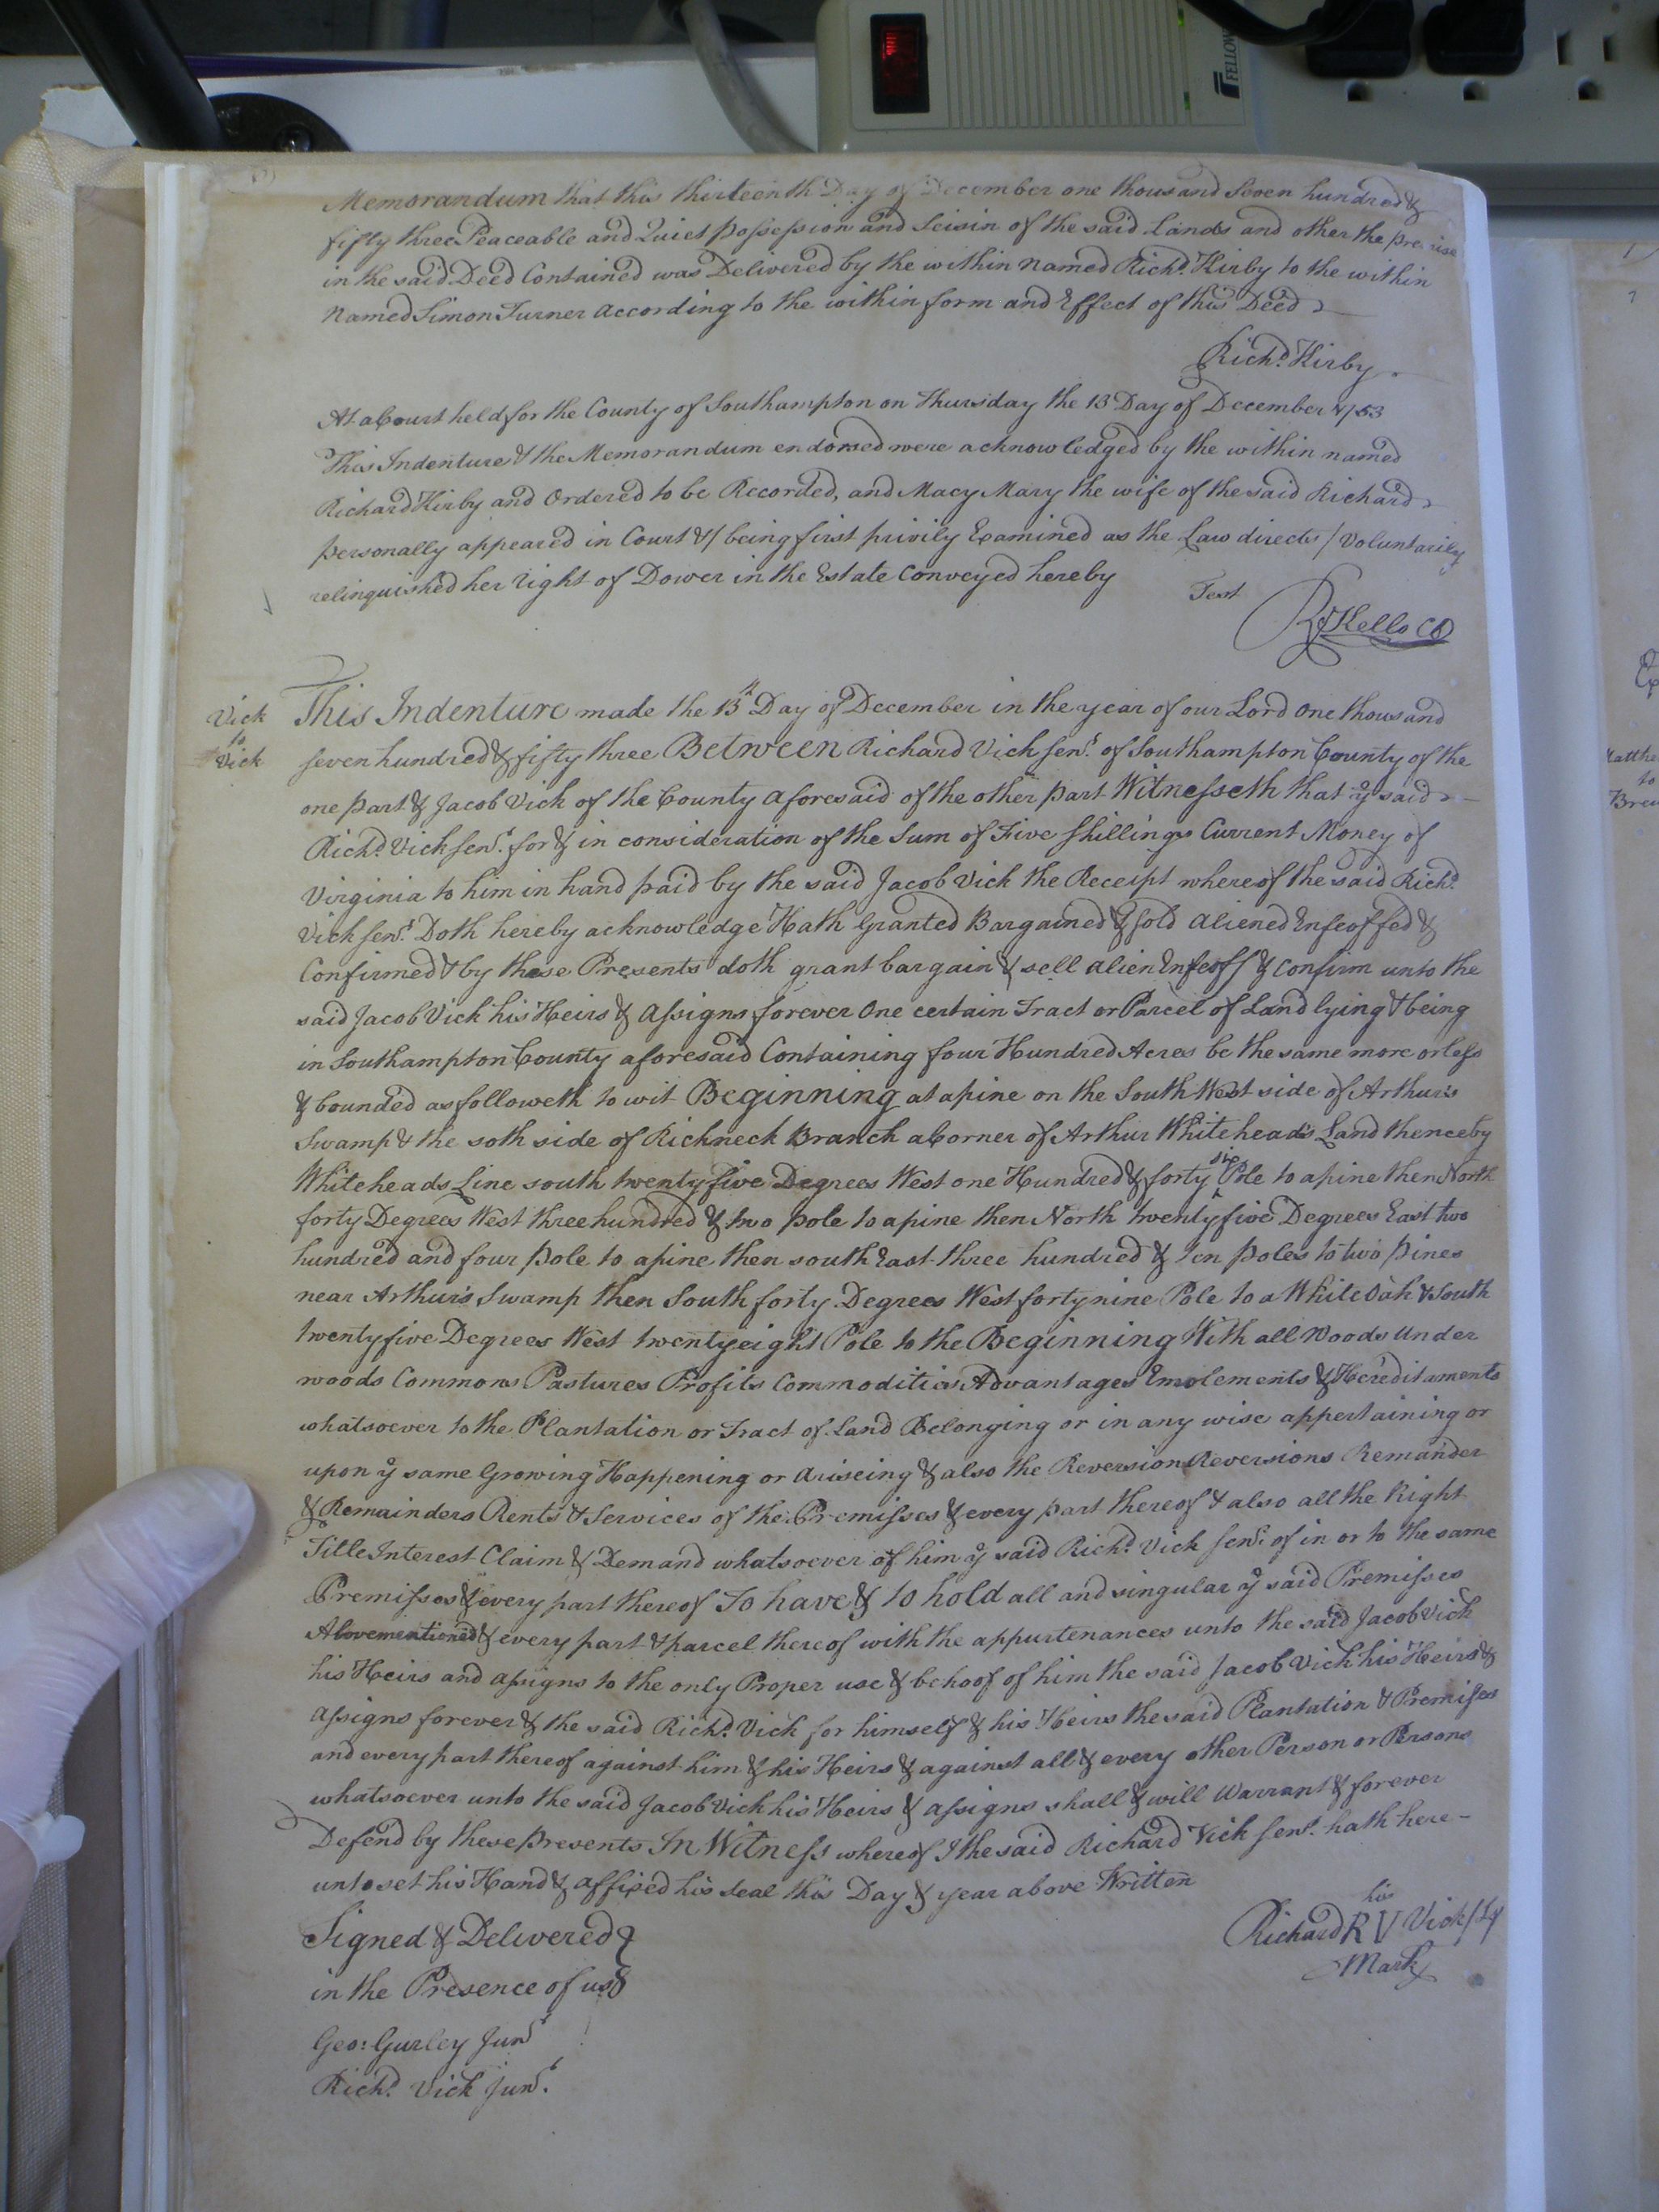 FELLOW
Memorandum that this thirteenth Day of December one thousand Seven hundred &
fifty three Peaceable and Quiet Possession and Seisin of the said Lands and other the premise
in the said Deed Contained was Delivered by the within named Richd. Kirby to the within
Named Simon Turner according to the within form and Effect of this Deed
Richd. Kirby
At a Court held for the County of Southampton on Thursday the 13 Day of December 1753
This Indenture & the Memorandum endorsed were acknowledged by the within named
Richard Kirby and Ordered to be Recorded, and Macy Mary the wife of the said Richard
personally appeared in Court & / being first privily Examined as the Law directs / Voluntarily
relinquished her right of Dower in the Estate Conveyed hereby
Test
Rd Kello CC
Vick
to
Vick
This Indenture made the 13th Day of December in the year of our Lord One thousand
seven hundred & fifty three Between Richard Vick senr. of Southampton County of the
one part & Jacob Vick of the County aforesaid of the other part Witnesseth that ye said
Richd. Vick senr. for & in consideration of the Sum of Five shillings Current Money of
Virginia to him in hand paid by the said Jacob Vick the Receipt whereof the said Richd.
Vick senr. Doth hereby acknowledge Hath Granted Bargained & sold aliened Enfeoffed &
Confirmed & by these Presents doth grant bargain & sell alien Enfeoff & Confirm unto the
said Jacob Vick his Heirs & Assigns forever One certain Tract or Parcel of Land lying & being
in Southampton County aforesaid Containing four Hundred Acres be the same more or less
& bounded as followeth to wit Beginning at a pine on the South West side of Arthur's
Swamp & the soth side of Richneck Branch a Corner of Arthur Whitehead's Land thence by
Whiteheads Line south twenty five Degrees West one Hundred & forty six Pole to a pine then North
forty Degrees West three hundred & two pole to a pine then North twenty five Degrees East two
hundred and four pole to a pine then south East three hundred & ten poles to two pines
near Arthur's Swamp then South forty Degrees West forty nine Pole to a White Oak & South
twenty five Degrees West twenty eight Pole to the Beginning With all Woods Under
woods Commons Pastures Profits Commodities Advantages Emolements & Hereditaments
whatsoever to the Plantation or Tract of Land Belonging or in any wise appertaining or
upon ye same Growing Happening or ariseing & also the Reversion Reversions Remander
& Remainders Rents & Services of the Premisses & every part thereof & also all the Right
Title Interest Claim & Demand whatsoever of him ye said Richd. Vick senr. of in or to the same
Premisses & every part thereof To have & to hold all and singular ye said Premisses
Abovementioned & every part & parcel thereof with the appurtenances unto the said Jacob Vick
his Heirs and assigns to the only Proper use & behoof of him the said Jacob Vick his Heirs &
assigns forever & the said Richd. Vick for himself & his Heirs the said Plantation & Premises
and every part thereof against him & his Heirs & against all & every other Person or Persons
whatsoever unto the said Jacob Vick his Heirs & assigns shall & will Warrant & forever
Defend by these presents In Witness whereof I the said Richard Vick senr. hath here-
unto set his Hand & affixed his Seal this Day & year above Written
Signed & Delivered
in the Presence of us
his
Richard R V Vick
Mark
Geo: Gurley Junr
Richd. Vick Junr.
to